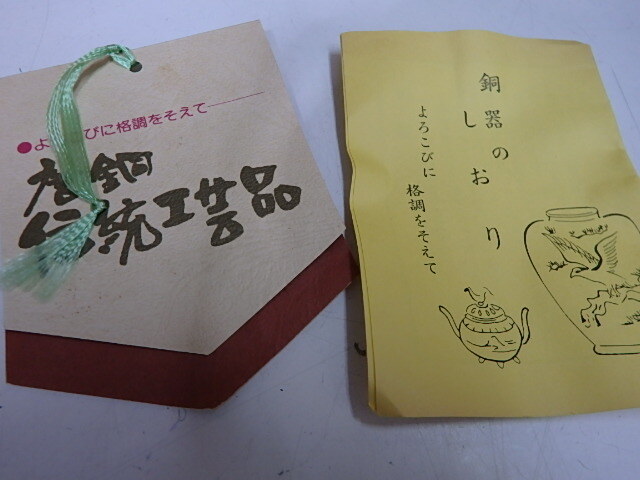 ●よろこびに格調をそえて——
唐銅
伝統工芸品
銅器の
しおり
よろこびに
格調をそえて